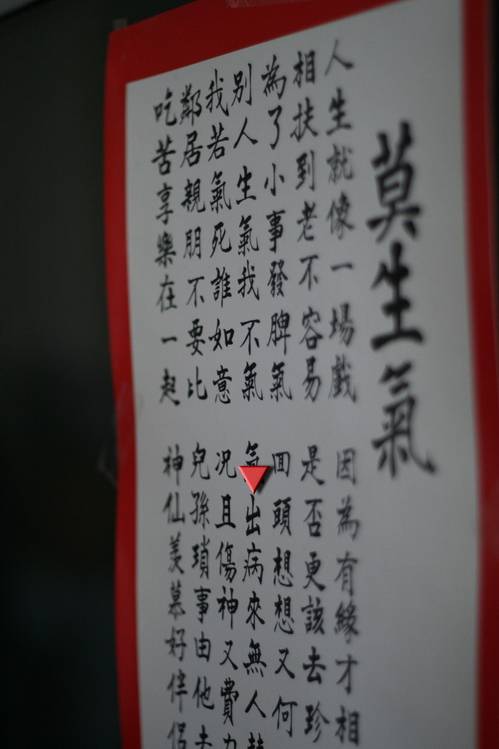 莫生氣
人生就像一場戲 因為有緣才相
相扶到老不容易 是否更該去珍
為了小事發脾氣 回頭想想又何
别人生氣我不氣 出病來無人
我若氣死誰如意 況且傷神又費
鄰居親朋不要比 兒孫瑣事由他
吃苦享樂在一起 神仙羨慕好伴侶